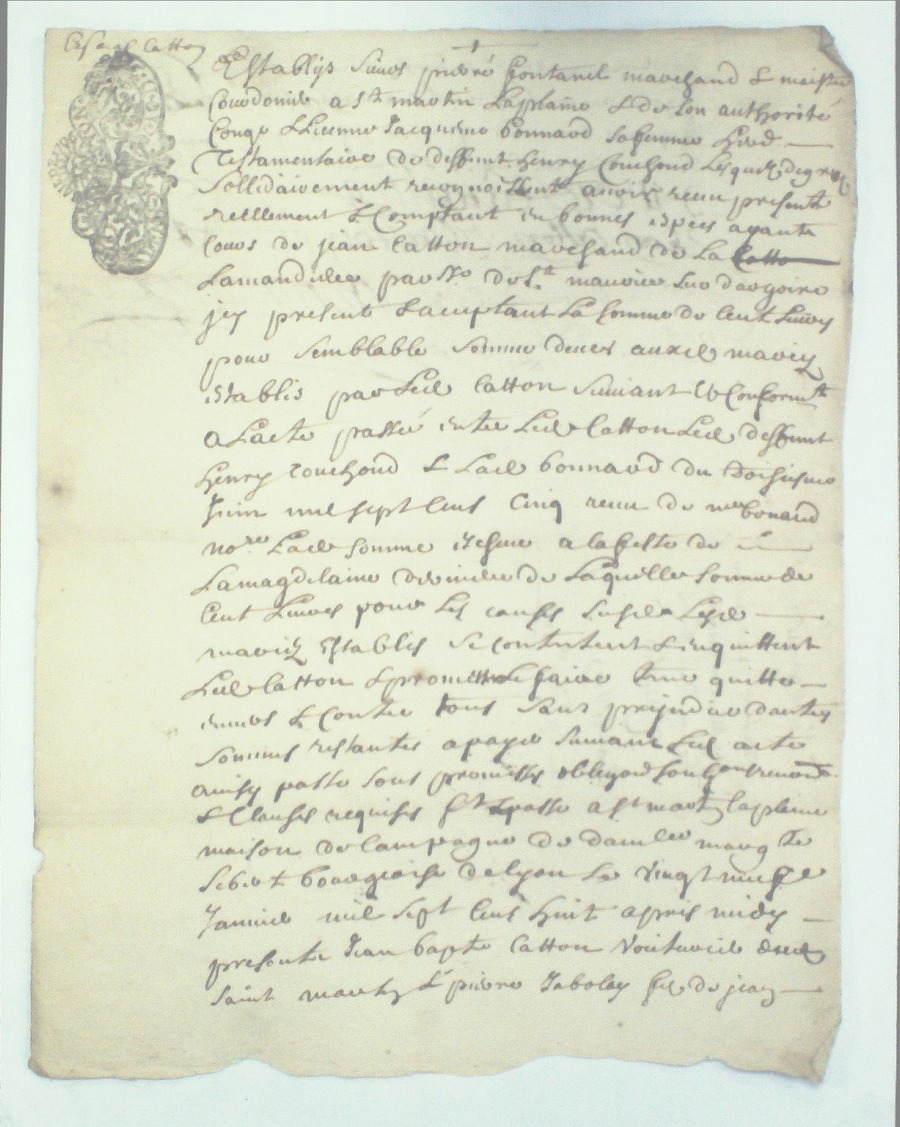 Catton
Establis Sieurs pierre fontanel marchand & maistre
Courdonnier a St martin Laplaine & de son authorité
Congé & Licenme Jacqueme bonnard sa femme
Testamentaire de deffunt henry Couchoud Lesquelz de gre
Sollidairement recognoissent avoir receu presente
reellement & Comptant en bonnes especes ayants
Cours de jean Catton marchand de La
Lamandiere parsse de St maurice sur dargoire
jcy present & acceptant La somme de Cent Livres
pour semblable somme deues auxd mariez
establis par Led Catton suivant & Conformt
a Lacte passé entre Led Catton Led deffunt
henry couchoud & Lad bonnard du
Juin mil sept Cens Cinq receu de me bonard
nore Lad somme a la feste de
Lamagdelaine de Laquelle somme de
Cent Livres pour Les causes susd Lesd
mariez establis se contentent & en quittent
Led Catton & promettent Le faire tenir quitte
envers & Contre tous sans prejudice dautres
sommes restantes a payer suivant Led acte
ainsy passé sous promesses obligaõns
& Clauses requises ft & passe a St martin laplaine
maison de Campagne de damlle margte
bourgeoise de Lyon Le Vingt neufe
Janvier mil sept Cens huit apres midy
presents Jean bapte Catton Voiturier dud
saint martin & pierre Jabolay fils de jean